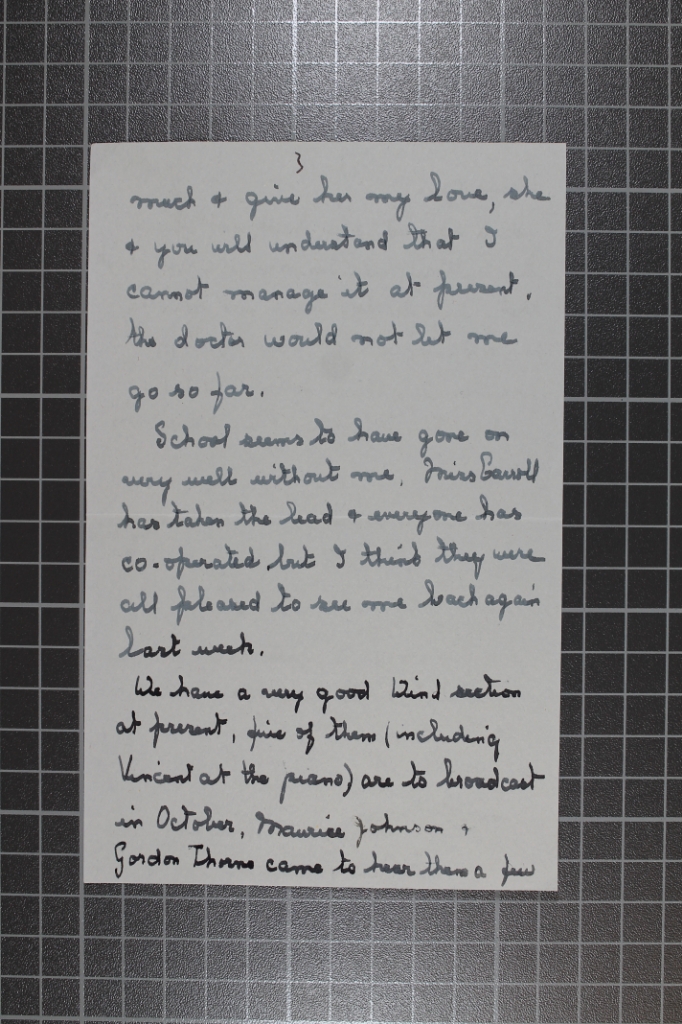 3
much & give her my love, she
& you will understand that I
cannot manage it at present.
the doctor would not let me
go so far.
School seems to have gone on
very well without me. Miss Carroll
has taken the lead & everyone has
co-operated but I think they were
all pleased to see me back again
last week.
We have a very good Wind section
at present, five of them (including
Vincent at the piano) are to broadcast
in October, Maurice Johnson &
Gordon Thorne came to hear them a few